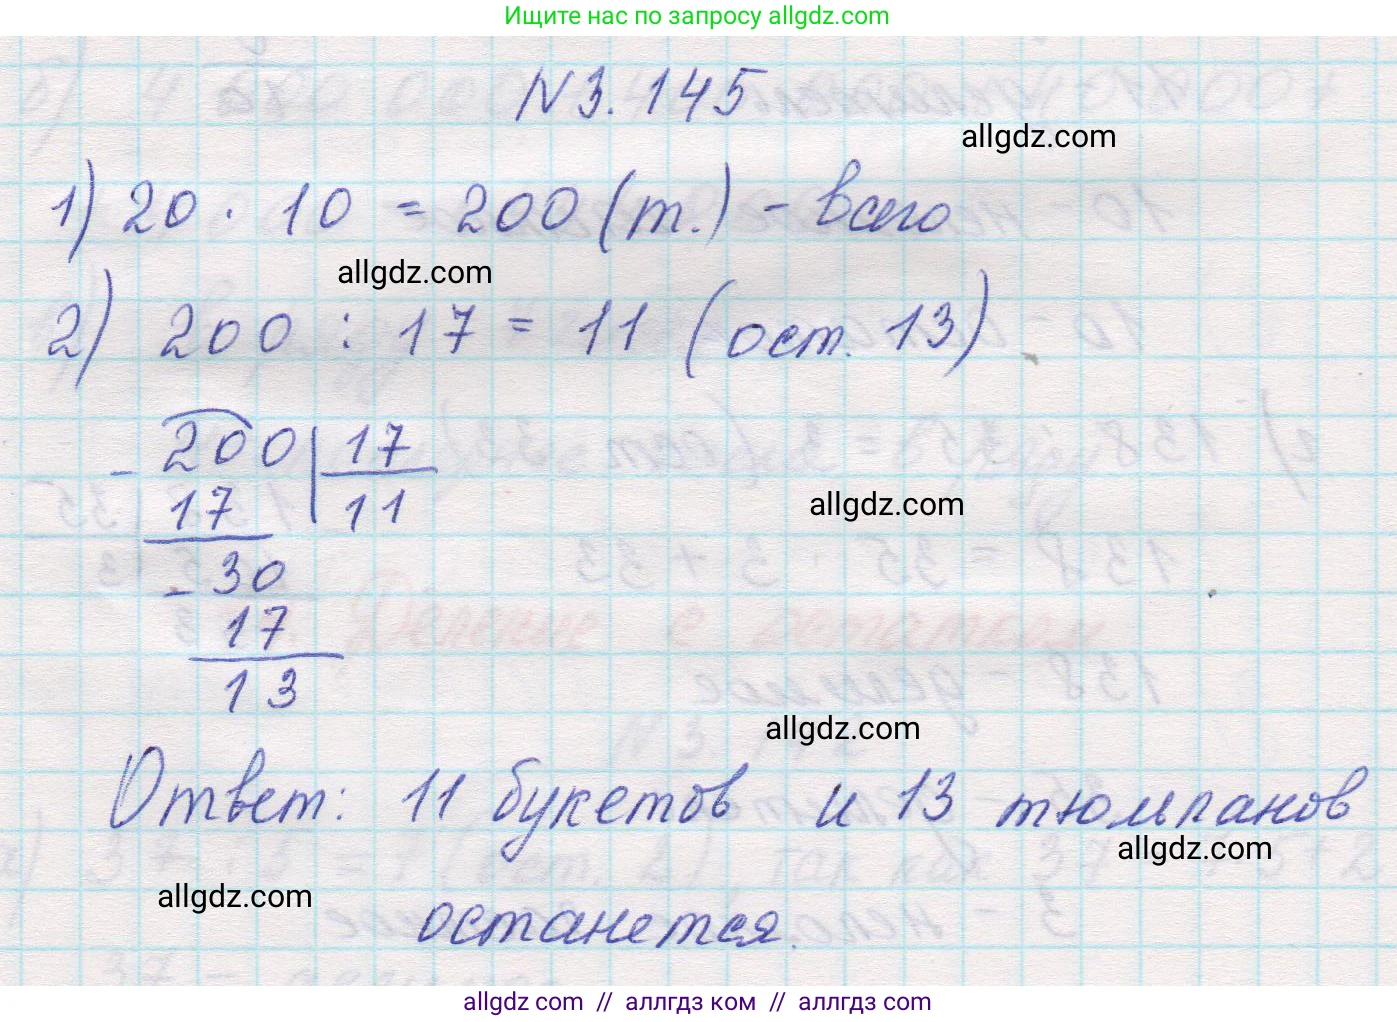 Ищите нас по запросу allgdz.com
N3.145
allgdz.com
1) 20 · 10 = 200 (т.) - всего
allgdz.com
2) 200 : 17 = 11 (ост. 13)
- 200 | 17
17 | 11
allgdz.com
- 30
17
13
allgdz.com
Ответ: 11 букетов и 13 тюльпанов
allgdz.com
allgdz.com
останется.
allgdz com // аллгдз ком // allgdz com